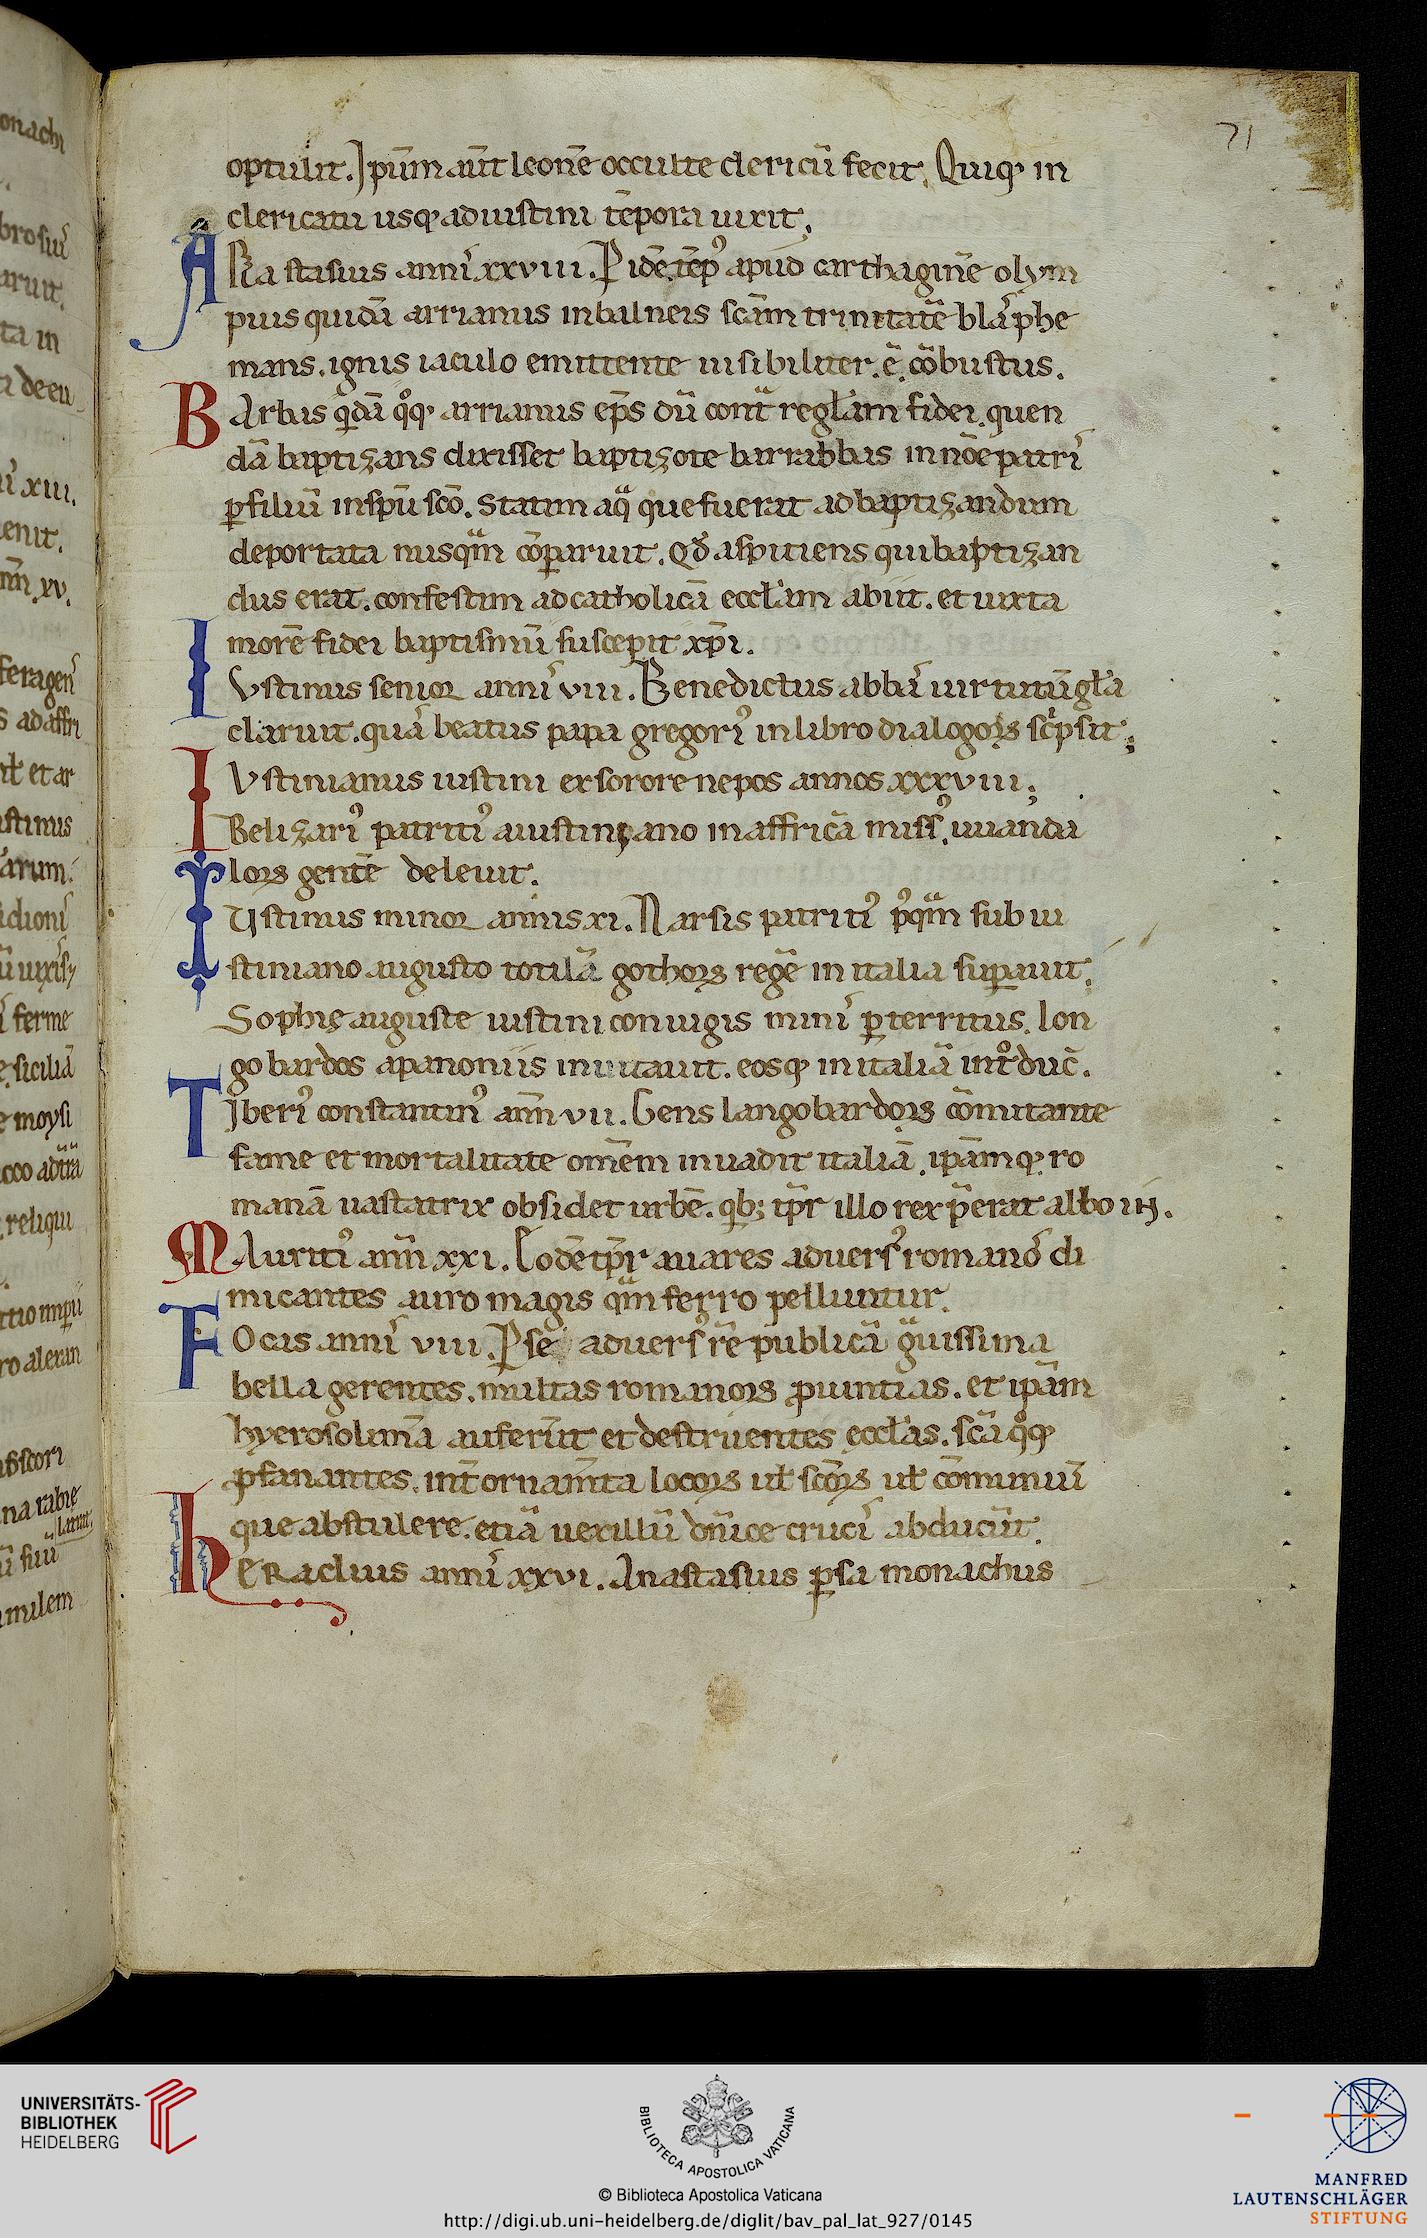 71
optulit. Ipsum aūt leonē occulte clericū fecit. Quiq; in
clericatu usq; ad iustini tēpora uixit.
Anastasius anni xxviii. P idē tēp' apud carthaginē olym
pius quidā arrianus in balneis scām trinitatē blasphe
mans. ignis iaculo emittente uisibiliter. ē. cōbustus.
Barbas qdā qq; arrianus eps dū contra reglam fidei. quen
dā baptizans dixisset baptizo te barrabbas in noē patri
p filiū in spū scō. Statim aq̄ que fuerat ad baptizandum
deportata nusq̄m cōparuit. Qđ aspitiens qui baptizan
dus erat. confestim ad catholicā eccłam abiit. et iuxta
morē fidei baptismū suscepit xp̄i.
Iustinus senior anni viii. Benedictus abba uirtutū gła
claruit. quā beatus papa gregori' in libro dialogoꝝ scrpsit;
Iustinianus iustini ex sorore nepos annos xxxviii;
Belizari' patriti' a iustiniano in affricā miss'. uuanda
loꝝ gentē deleuit.
Iustinus minor annis xi. Narsis patriti' p'q̄m sub iu
stiniano augusto totilā gothoꝝ regē in italia supauit.
Sophię auguste iustini coniugis mini pterritus. lon
gobardos a panoniis inuitauit. eosq; in italiā introduc̄.
Tiberi' constantin' ann̄ vii. Gens langobardoꝝ cōmitante
fame et mortalitate omēm inuadit italiā. ipāmq; ro
manā uastatrix obsidet urbē. qb; tp̄r illo rex p̄erat alboiн.
Mauriti' ann̄ xxi. Eodē tp̄r auares aduers' romano' di
micantes auro magis q̄m ferro pelluntur.
Focas anni viii. Pse aduers' rē publicā grauissima
bella gerentes. multas romanoꝝ puintias. et ipām
hyerosolimā auferūt et destruentes eccłas. scā qq;
pfanantes. int ornam̄ta locoꝝ uł scōꝝ uł cōmuniū
que abstulere. etiā uexillū dn̄ice cruci' abducūt.
heraclius anni xxvi. Anastasius psa monachus
UNIVERSITÄTS-
BIBLIOTHEK
HEIDELBERG
BIBLIOTECA APOSTOLICA VATICANA
© Biblioteca Apostolica Vaticana
http://digi.ub.uni-heidelberg.de/diglit/bav_pal_lat_927/0145
MANFRED
LAUTENSCHLÄGER
STIFTUNG